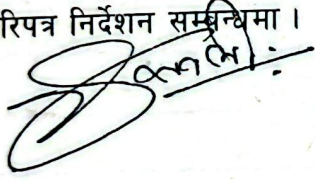 रिपत्र निर्देशन सम्बन्धिमा ।